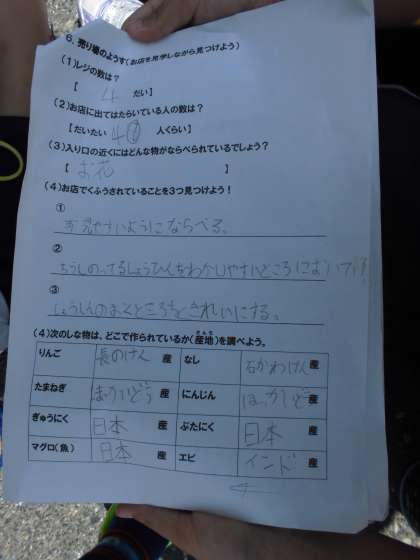 6. 売り場のようす(お店を見学しながら見つけよう)
(1)レジの数は?
【 4 だい】
(2)お店に出てはたらいている人の数は?
【だいたい 40 人くらい】
(3)入り口の近くにはどんな物がならべられているでしょう?
【 お花 】
(4)お店でくふうされていることを3つ見つけよう!
①
見やすいようにならべる。
②
③
きれいにする。
(4)次のしな物は、どこで作られているか(産地)を調べよう。
さんち
りんご 長のけん 産 なし 石かわけん 産
たまねぎ ほっかいどう 産 にんじん ほっかいど 産
ぎゅうにく 日本 産 ぶたにく 日本 産
マグロ(魚) 日本 産 エビ インド 産